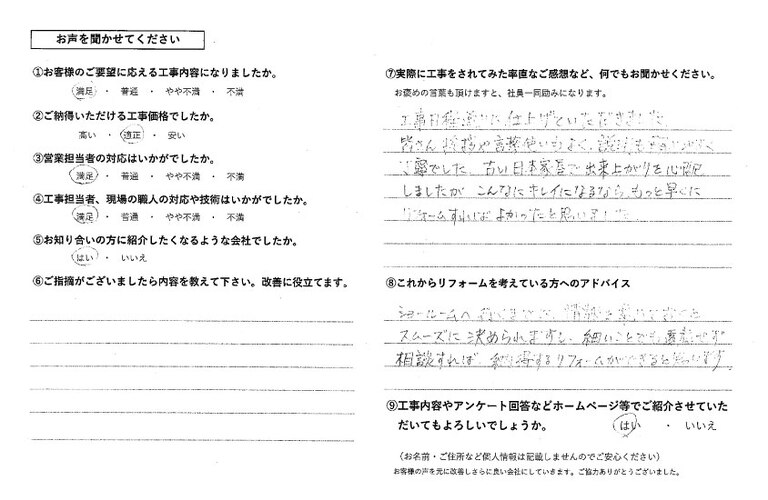 お声を聞かせてください
①お客様のご要望に応える工事内容になりましたか。
満足 ・ 普通 ・ やや不満 ・ 不満
②ご納得いただける工事価格でしたか。
高い ・ 適正 ・ 安い
③営業担当者の対応はいかがでしたか。
満足 ・ 普通 ・ やや不満 ・ 不満
④工事担当者、現場の職人の対応や技術はいかがでしたか。
満足 ・ 普通 ・ やや不満 ・ 不満
⑤お知り合いの方に紹介したくなるような会社でしたか。
はい ・ いいえ
⑥ご指摘がございましたら内容を教えて下さい。改善に役立てます。
⑦実際に工事をされてみた率直なご感想など、何でもお聞かせください。
お褒めの言葉も頂けますと、社員一同励みになります。
工事日程通りに仕上げていただきました
皆さん 挨拶や言葉使いもよく、説明も
丁寧でした。古い日本家屋で出来上がりを心配
しましたが こんなにキレイになるなら、もっと早くに
リフォームすればよかったと思いました
⑧これからリフォームを考えている方へのアドバイス
ショールームへ
スムーズに決められますし、細いことでも
相談すれば、納得するリフォームができると思います
⑨工事内容やアンケート回答などホームページ等でご紹介させていた
だいてもよろしいでしょうか。 はい ・ いいえ
（お名前・ご住所など個人情報は記載しませんのでご安心ください）
お客様の声を元に改善しさらに良い会社にしていきます。ご協力ありがとうございました。